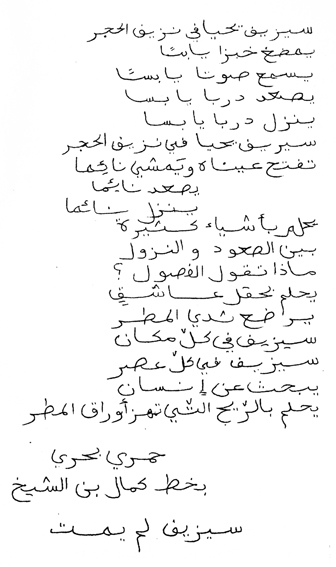 سيزيف يحيا في نزيف الحجر
يمضغ خبزا يابسًا
يسمع صوتا يابسًا
يصعد دربا يابسا
ينزل دربا يابسا
سيزيف يحيا في نزيف الحجر
تفتح عيناه ويمشي نائما
يصعد نائما
ينزل نائما
يحلم بأشياء كثيرة
بين الصعود والنزول
ماذا تقول الفصول ؟
يحلم بحقل عاشق
يراضع ثدي المطر
سيزيف في كلّ مكان
سيزيف في كلّ عصر
يبحث عن إنسان
يحلم بالرّيح الّتي تهز أوراق المطر
حمري بحري
بخط كمال بن الشيخ
سيزيف لم يمت